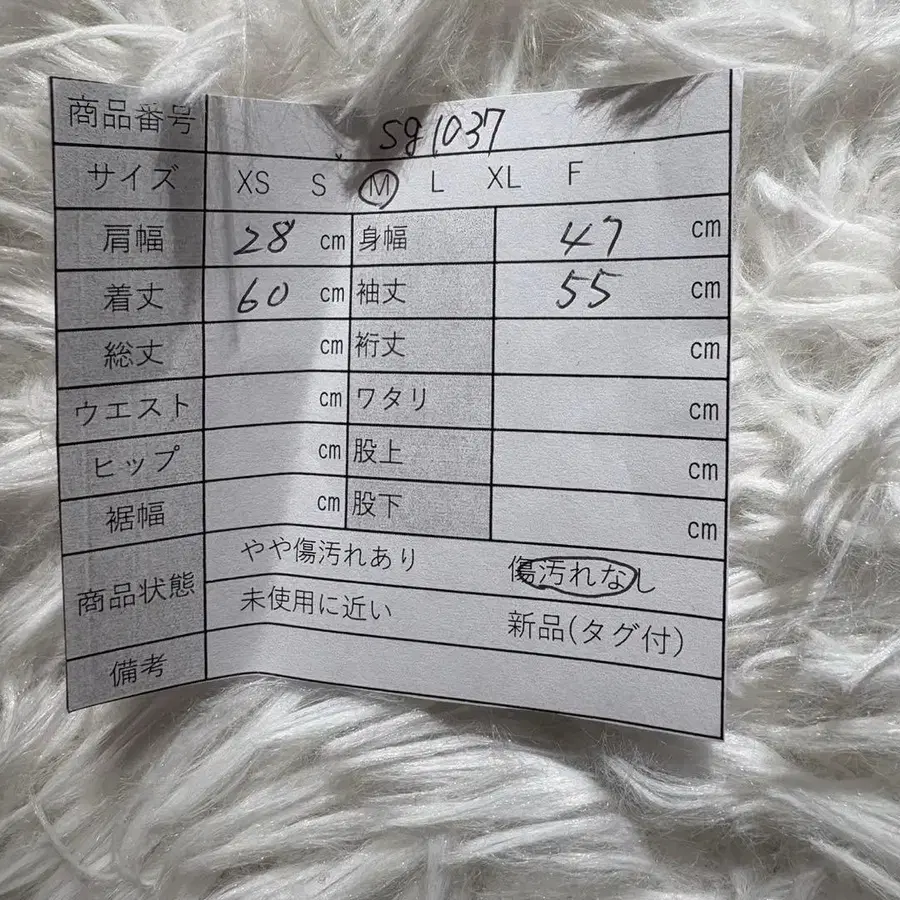 商品番号 sg1037
サイズ XS S M L XL F
肩幅 28 cm 身幅 47 cm
着丈 60 cm 袖丈 55 cm
総丈 cm 裄丈 cm
ウエスト cm ワタリ cm
ヒップ cm 股上 cm
裾幅 cm 股下 cm
商品状態 やや傷汚れあり 傷汚れなし
未使用に近い 新品(タグ付)
備考